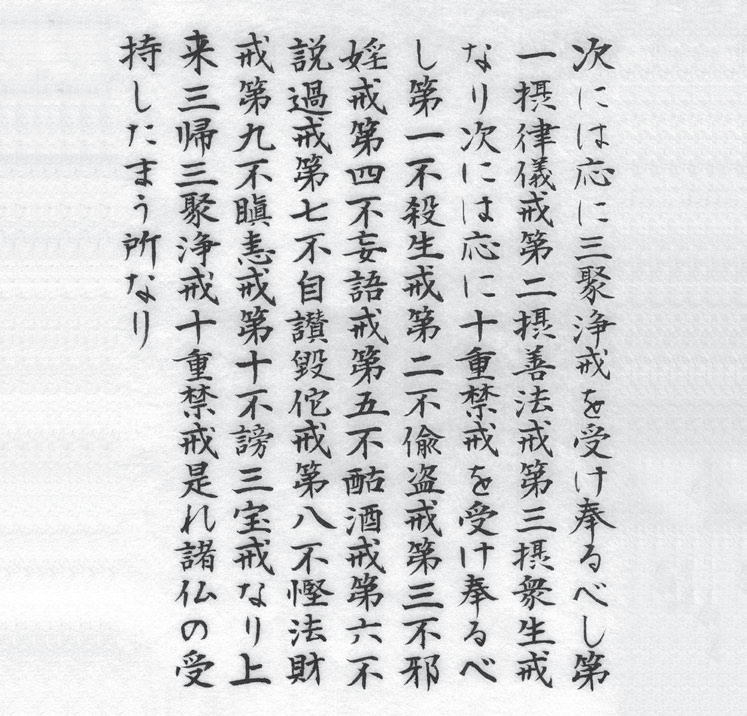 次には応に三聚浄戒を受け奉るべし第
一摂律儀戒第二摂善法戒第三摂衆生戒
なり次には応に十重禁戒を受け奉るべ
し第一不殺生戒第二不偸盗戒第三不邪
婬戒第四不妄語戒第五不酤酒戒第六不
説過戒第七不自讃毀佗戒第八不慳法財
戒第九不瞋恚戒第十不謗三宝戒なり上
来三帰三聚浄戒十重禁戒是れ諸仏の受
持したまう所なり